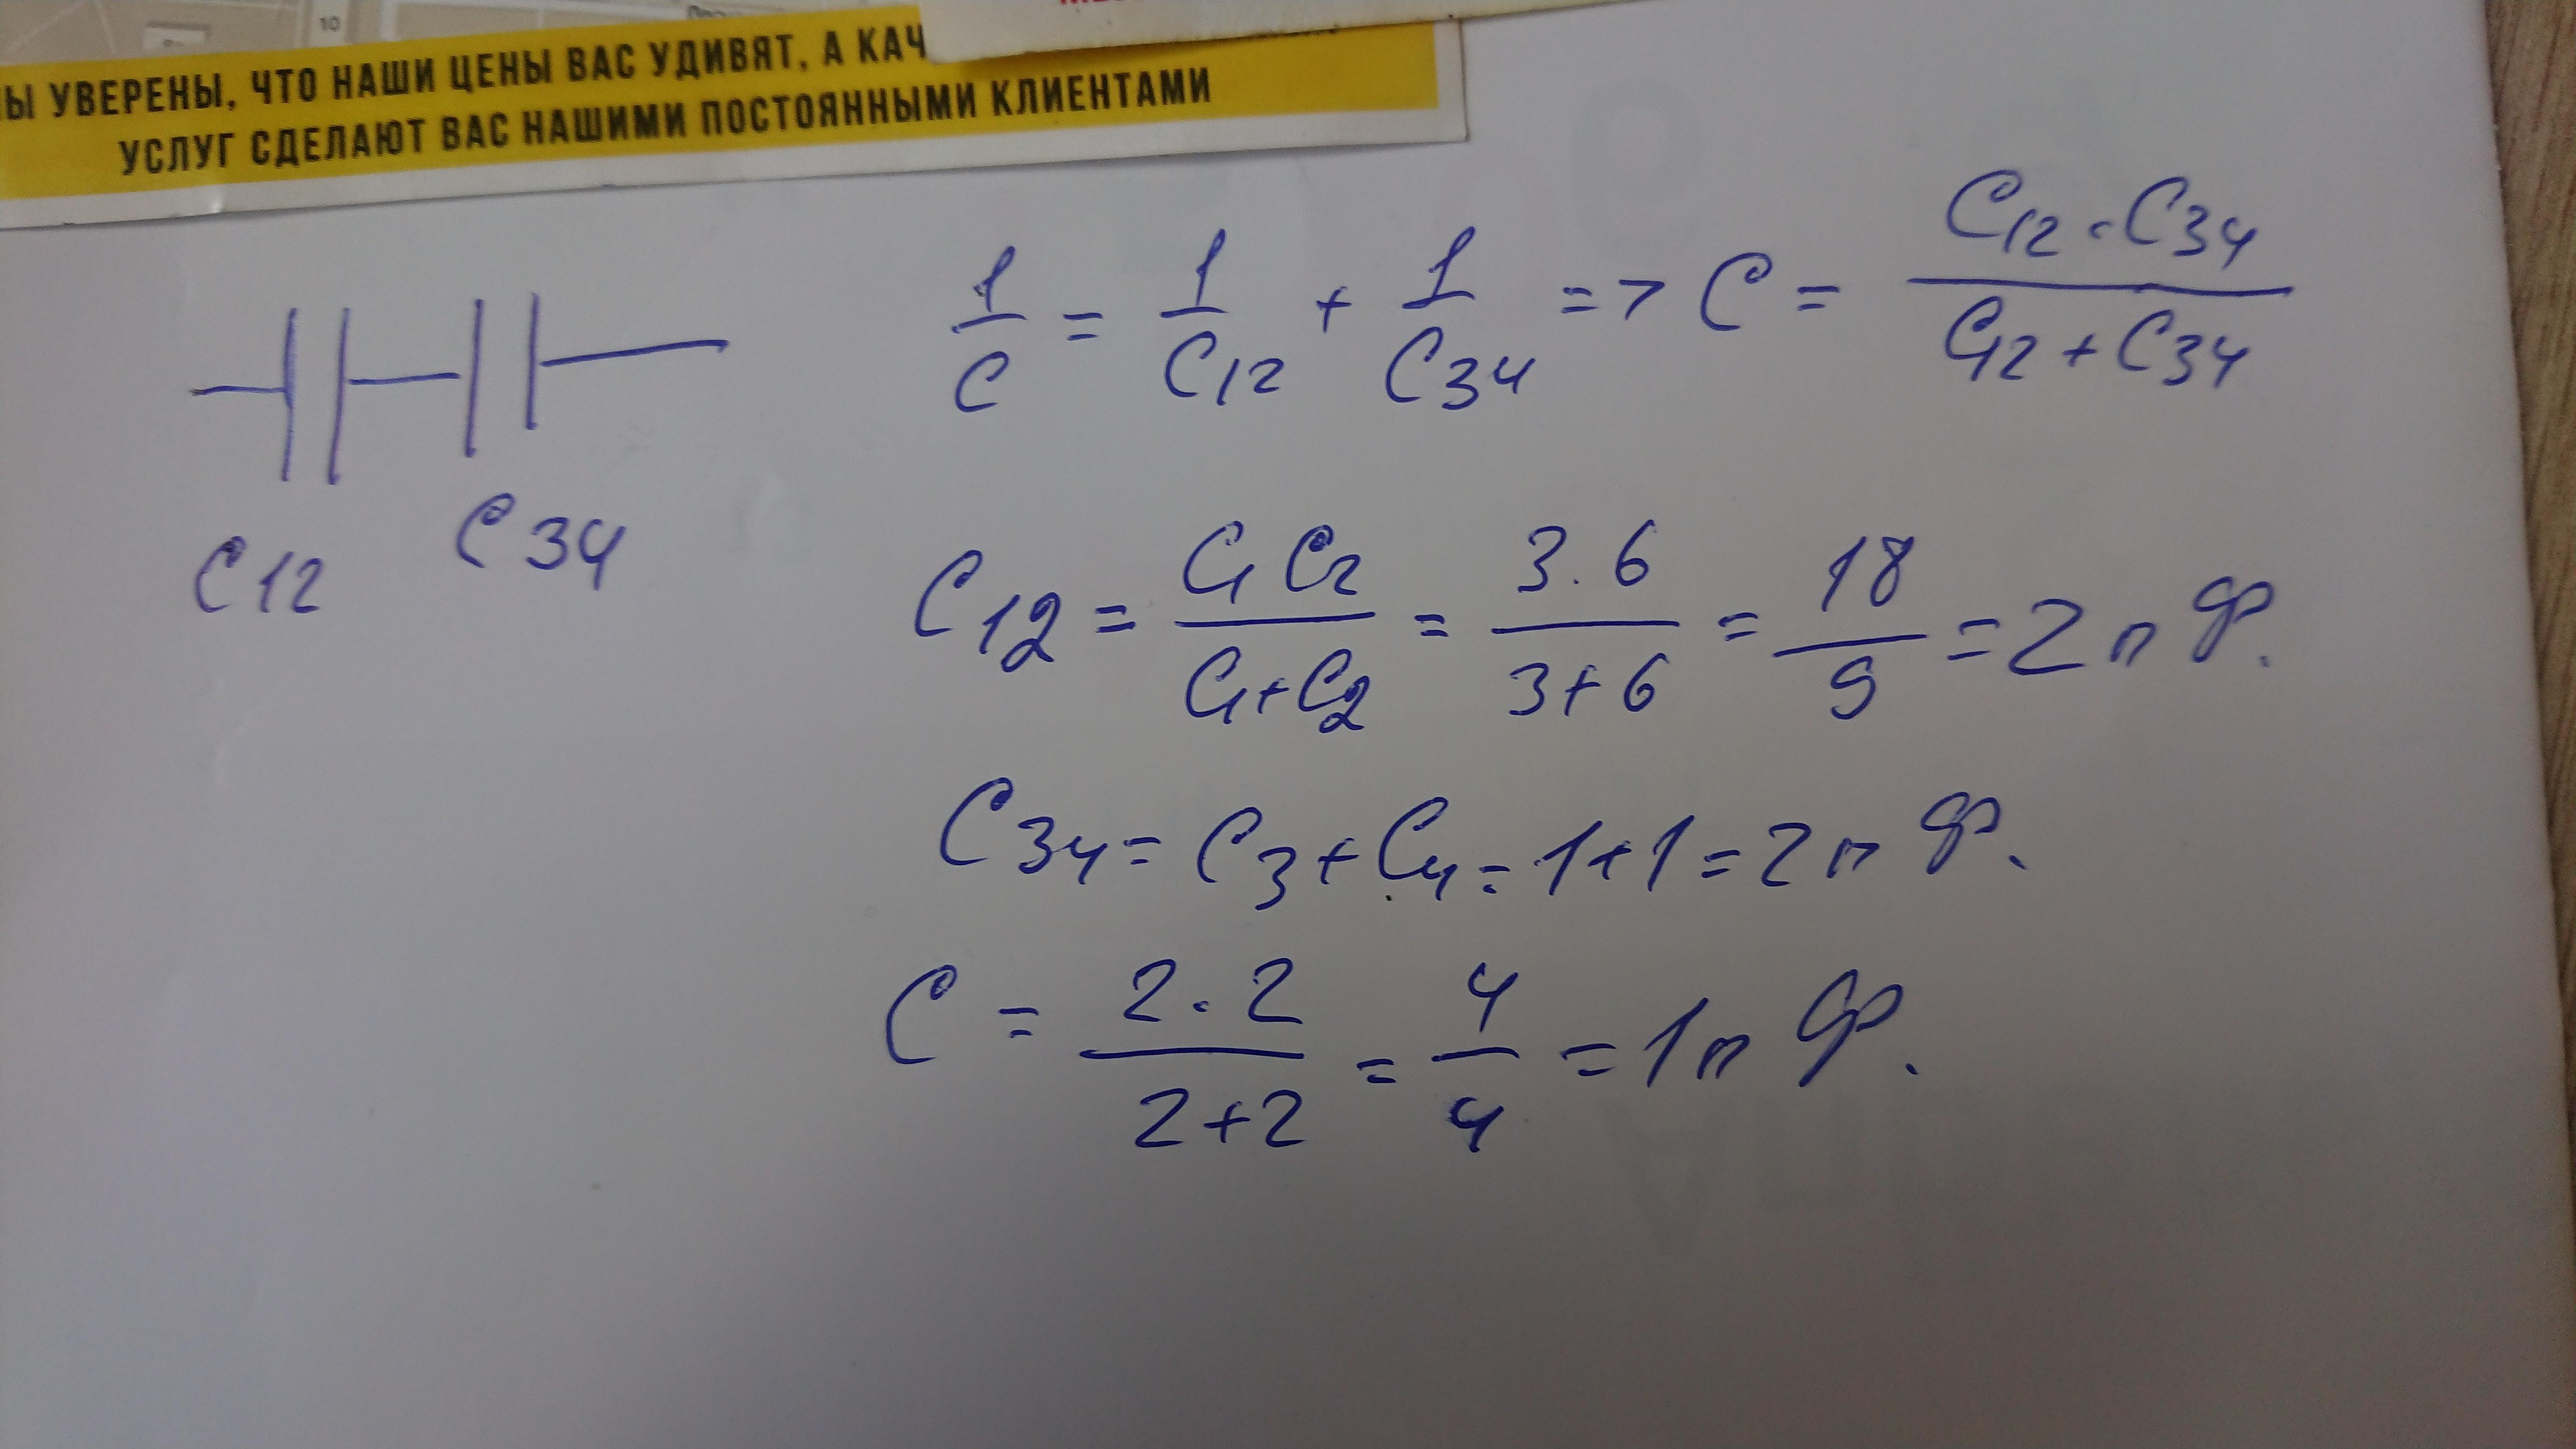 10
Ы УВЕРЕНЫ, ЧТО НАШИ ЦЕНЫ ВАС УДИВЯТ, А КАЧ
УСЛУГ СДЕЛАЮТ ВАС НАШИМИ ПОСТОЯННЫМИ КЛИЕНТАМИ
C12 C34
1/C = 1/C12 + 1/C34 => C = C12 · C34 / C12 + C34
C12 = C1 C2 / C1+C2 = 3 · 6 / 3+6 = 18 / 9 = 2 п Ф.
C34 = C3 + C4 = 1+1 = 2 п Ф.
C = 2 · 2 / 2+2 = 4 / 4 = 1 п Ф.